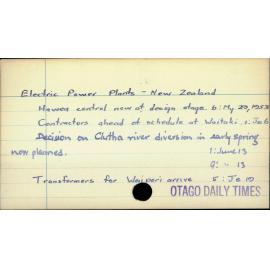 Electric Power Plants - New Zealand
Hawea control now at design stage 6: My 20, 1953
Contractors ahead of schedule at Waitaki. 1: Je 6
Decision on Clutha river diversion in early spring
now planned. 1: June 13
9: " 13
Transformers for Waipori arrive 5: Je 19
OTAGO DAILY TIMES